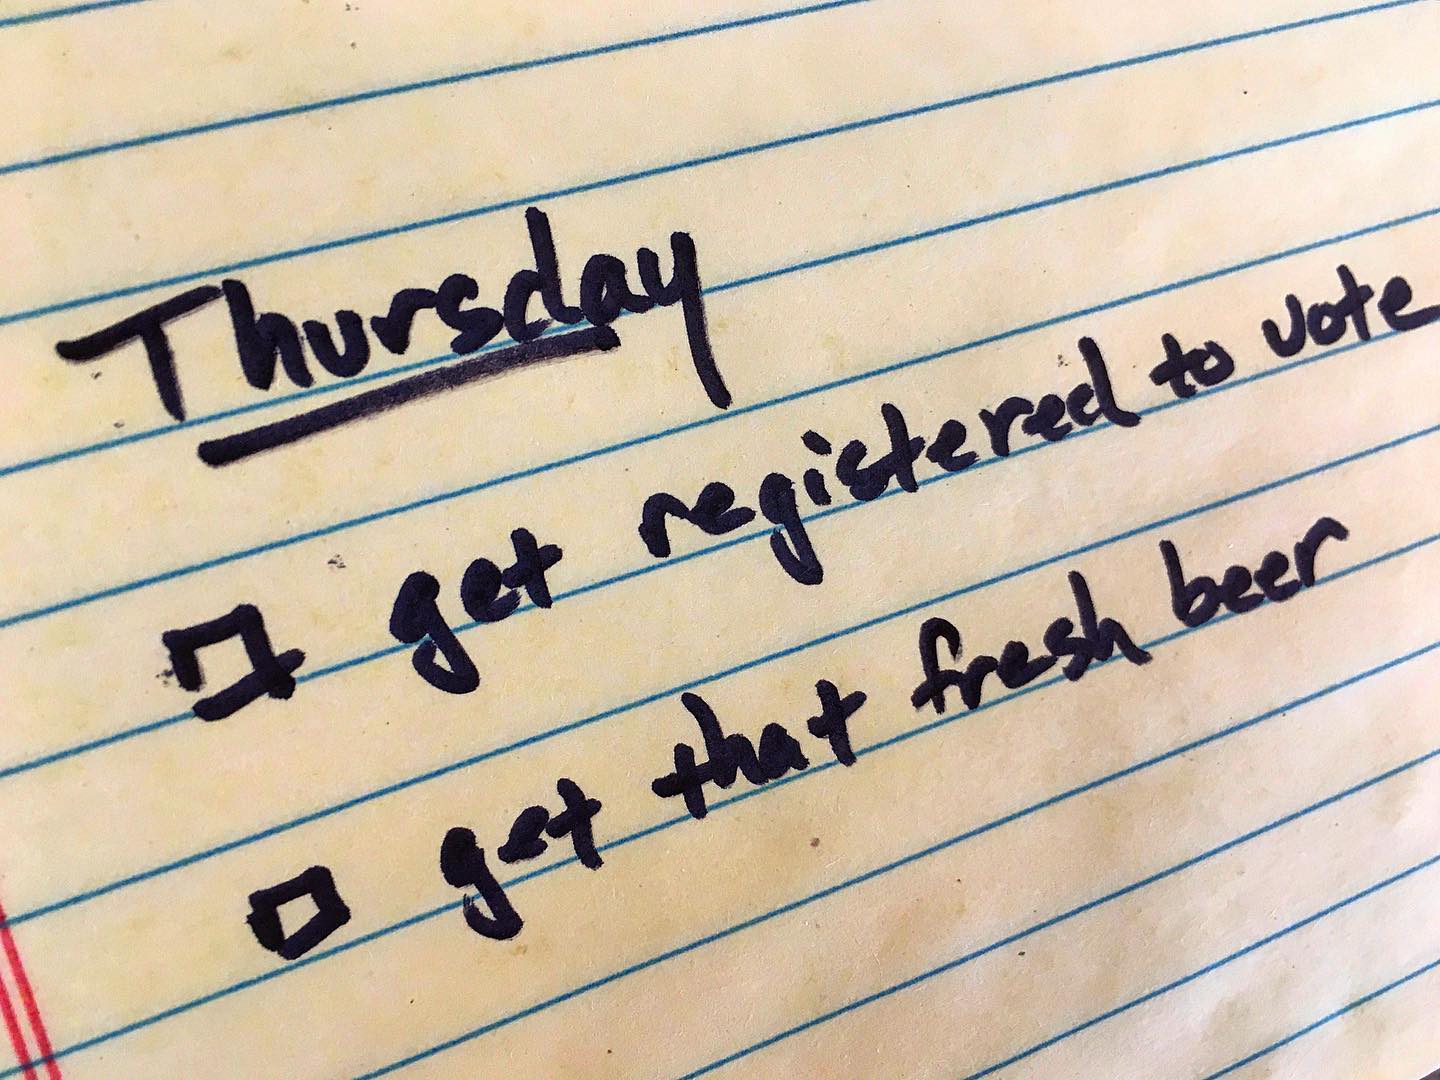 Thursday
get registered to vote
get that fresh beer